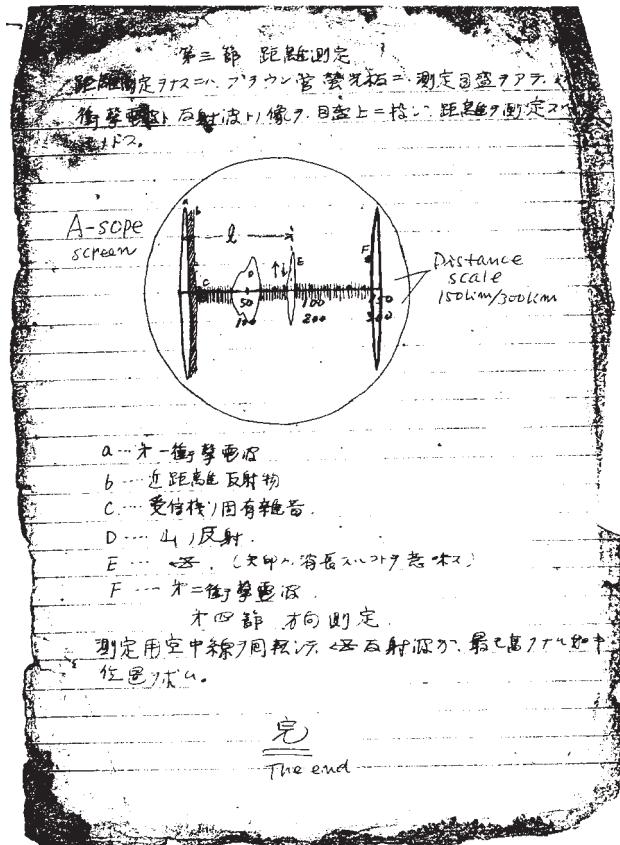 第三節 距離測定
距離測定ヲナスニハ ブラウン管螢光板ニ 測定目盛ヲアテ、
衝撃電波ト反射波トノ像ヲ 目盛上ニ拾ヒ 距離ヲ測定ス
トス。
A-sope
screen
a
b
l
C
D
E
F
50
100
150
100
200
300
Distance
scale
150km/300km
a … 才一衝撃電波
b … 近距離反射物
C … 受信機ノ固有雑音.
D … 山ノ反射.
E … . (矢印ハ消長スルコトヲ意味ス)
F … 才二衝撃電波
才四節 方向測定.
測定用空中線ヲ回転シテ、 反射波ガ、最モ高クナル
位置ヲ求ム。
完
The end